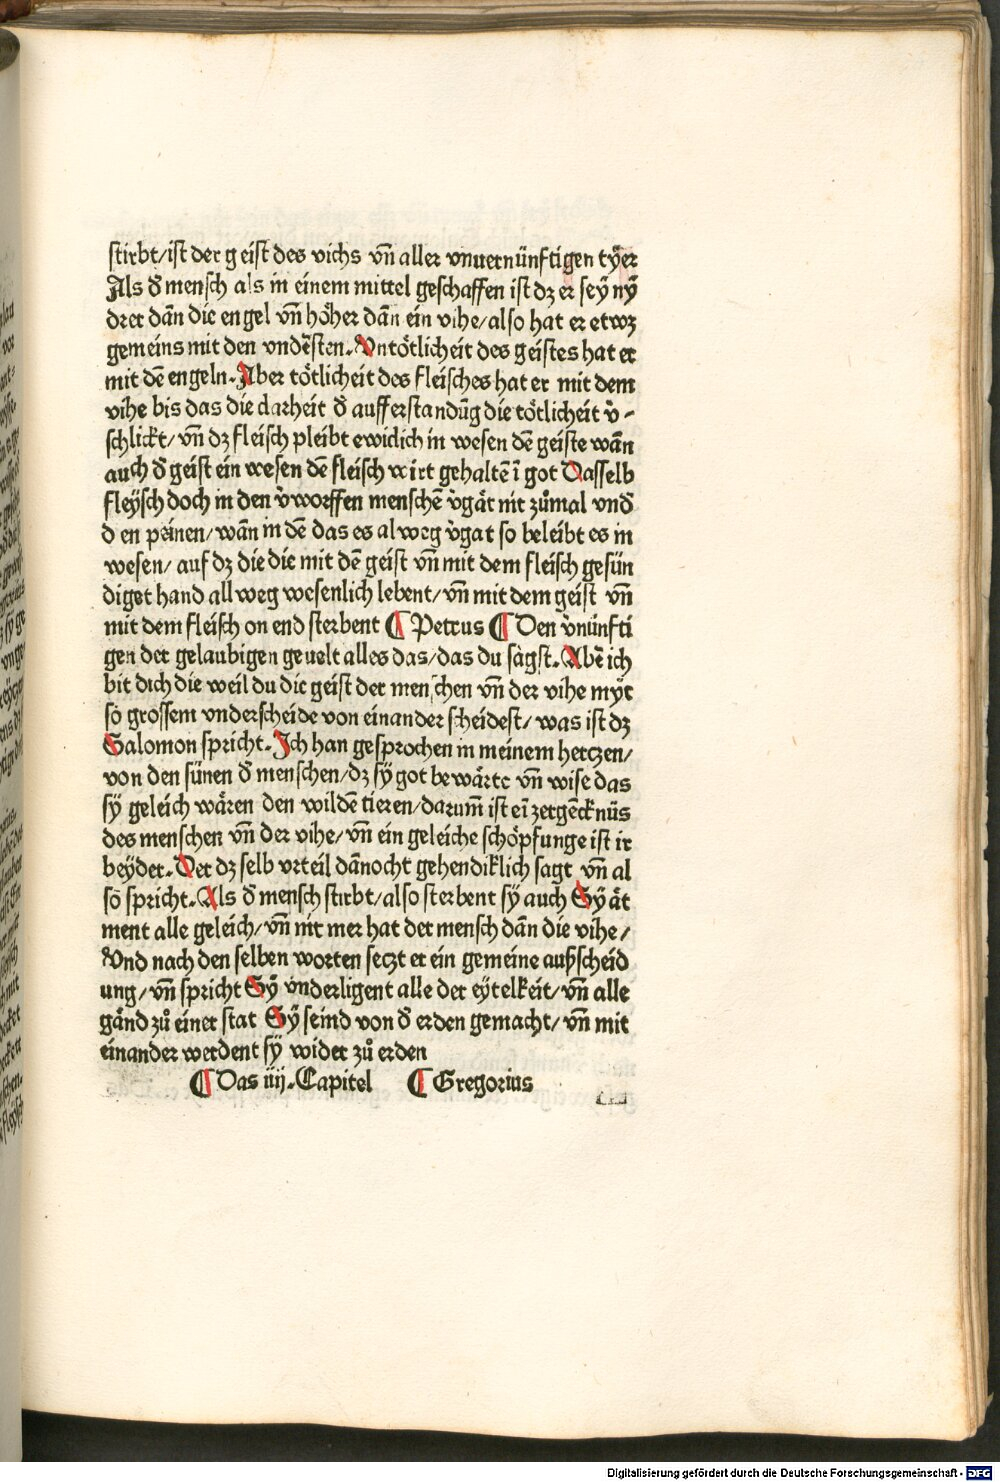 stirbt/ist der geist des vichs vn̄ aller vnuernünftigen tÿer
Als d̕ mensch als in einem mittel geschaffen ist dz er seÿ nÿ
drer dan̄ die engel vn̄ höher dan̄ ein vihe/also hat er etwz
gemeins mit den vndēsten. Untötlicheit des geistes hat er
mit dē engeln. Aber tötlicheit des fleisches hat er mit dem
vihe bis das die clarheit d̕ aufferstandūg die tötlicheit v̕-
schlickt/vn̄ dz fleisch pleibt ewiclich in wesen dē geiste wan̄
auch d̕ geist ein wesen dē fleisch wirt gehaltē ī got Dasselb
fleÿsch doch in den v̕worffen menschē v̕gät nit zůmal vnd̕
den peinen/wan̄ in dē das es alweg v̕gat so beleibt es in
wesen/auf dz die die mit dē geist vn̄ mit dem fleisch gesün
diget hand allweg wesenlich lebent/vn̄ mit dem geist vn̄
mit dem fleisch on end sterbent ¶ Petrus ¶ Den v̕nünfti
gen der gelaubigen geuelt alles das/das du sagst. Abē ich
bit dich die weil du die geist der menschen vn̄ der vihe myt
so grossem vnderscheide von einander scheidest/was ist dz
Salomon spricht. Ich han gesprochen in meinem hertzen/
von den sünen d̕ menschen/dz sÿ got bewärte vn̄ wise das
sÿ geleich wären den wildē tieren/darum̄ ist eī zergēcknüs
des menschen vn̄ der vihe/vn̄ ein geleiche schöpfunge ist ir
beÿder. Der dz selb vrteil dan̄ocht gehendiklich sagt vn̄ al
so spricht. Als d̕ mensch stirbt/also sterbent sÿ auch Sÿ ät
ment alle geleich/vn̄ nit mer hat der mensch dan̄ die vihe/
Und nach den selben worten seczt er ein gemeine außscheid
ung/vn̄ spricht Sÿ vnderligent alle der eÿtelkeit/vn̄ alle
gänd zů einer stat Sÿ seind von d̕ erden gemacht/vn̄ mit
einander werdent sÿ wider zů erden
¶ Das iiij. Capitel ¶ Gregorius
Digitalisierung gefördert durch die Deutsche Forschungsgemeinschaft - DFG